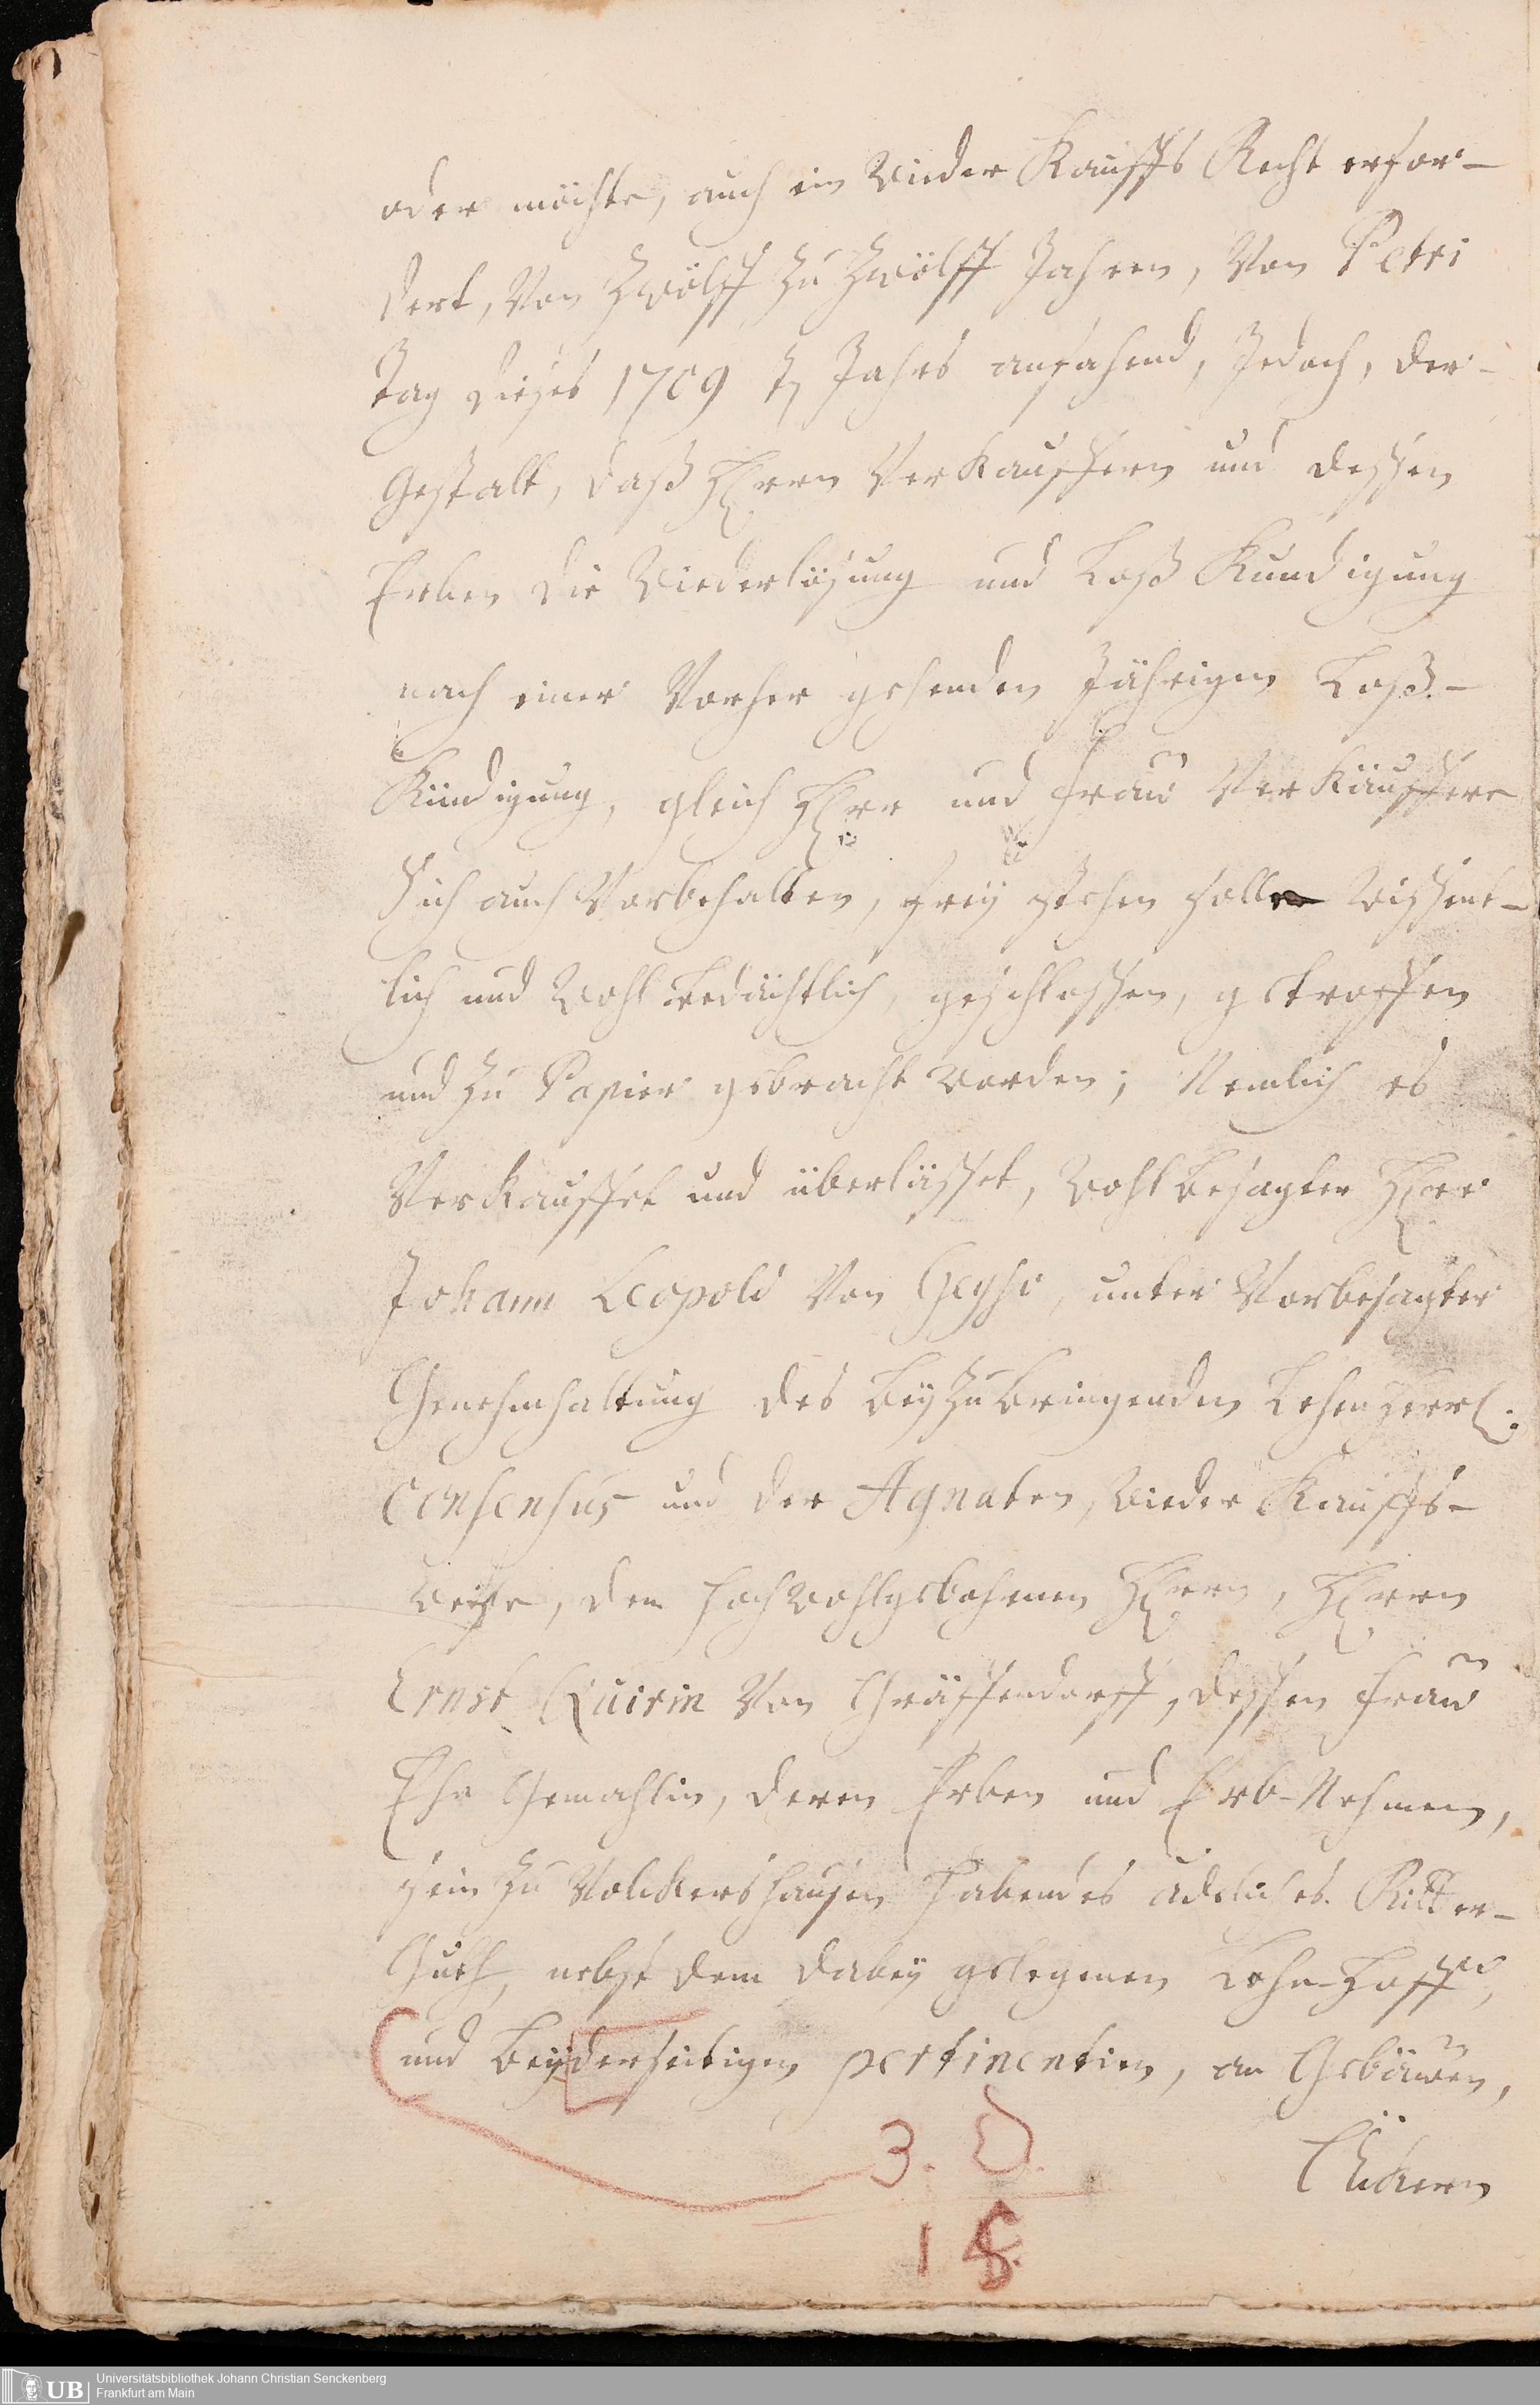 oder möchte, auch ein Wieder Kauffs Recht erfor-
dert, Von Zwölff zu Zwölff Jahren, Von Petri
Tag dießes 1709 tz Jahrs anfahend, Jedoch, der-
Gestalt, daß Herrn Verkauffern und deßen
Erben die Wiederlößung und Loß Kundigung
nach einer Vorher gehenden Jährigen Loß-
Kündigung, gleich Herr und Frau Verkäuffere
Sich auch Vorbehalten, freÿ stehen solle Wißent-
lich und Wohl bedächtlich, geschloßen, getroffen
und zu Papier gebracht worden; Nemlich es
Verkauffet und überläßet, Wohlbesagter Herr
Johann Leopold Von Geyso, unter Vorbesagter
Genehmhaltung des beÿzubringenden Lehenherrl:
Consensus und der Agnaten, Wieder Kauffs-
weiße, dem HochWohlgebohrnen Herrn, Herrn
Ernst Quirin Von Gräffendorff, deßen Frau
Ehe Gemahlin, deren Erben und Erb-Nehmen,
sein zu Volckershaußen habendes adeliches Ritter-
Guth, nebst dem dabeÿ gelegenen Lehn-Hoffe,
und beÿderseitigen pertinentien, an Gebäuen,
Äckern
3. D.
18.
UB Universitätsbibliothek Johann Christian Senckenberg
Frankfurt am Main